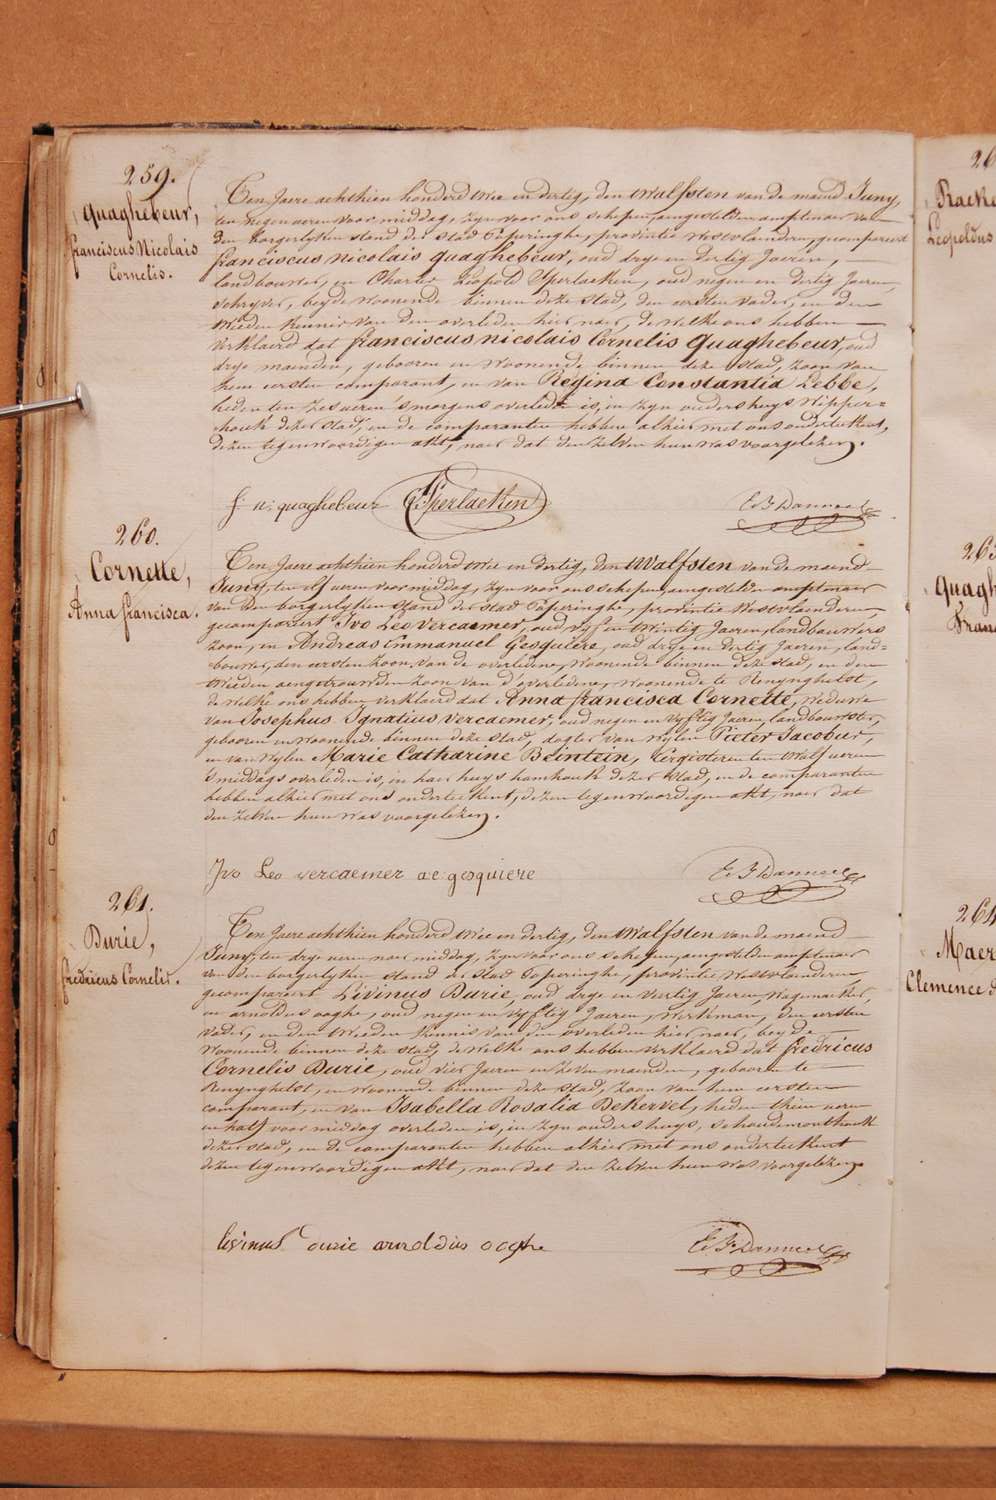 259.
Quaghebeur,
franciscus Nicolais
Cornelis.
Ten Jaere achthien honderd twee en dertig, den twalfsten van de maend Juny,
ten negen uren voor middag, zyn voor ons schepen, aengestelden amptenaer van
den borgerlyken stand der stad Poperinghe, provintie Westvlaenderen, gecompareert
franciscus nicolais quaghebeur, oud drye en dertig Jaeren,
landbouwer, en Charles Léopold Sperlaeken, oud negen en dertig Jaeren,
schryver, beyde woonende binnen deze stad, den eersten vader, en den
tweeden kennis van den overleden hier naer, de welke ons hebben
verklaerd dat franciscus nicolais Cornelis Quaghebeur, oud
drye maenden, gebooren en woonende binnen deze stad, zoon van
hem eersten comparant, en van Régina Constantia Lebbe,
heden ten zes uren 's morgens overleden is, in zyn ouders huys Wipper=
houk dezer stad, en de comparanten hebben alhier met ons onderteekent,
dezen tegenwoordigen akt, naer dat den zelven hun was voorgelezen.
f: n: quaghebeur Sperlaeken E. F. Danneel
260.
Cornette,
Anna francisca.
Ten Jaere achthien honderd twee en dertig, den twalfsten van de maend
Juny, ten elf uren voor middag, zyn voor ons schepen, aengestelden amptenaer
van den borgerlyken stand der stad Poperinghe, provintie Westvlaenderen,
gecompareert Ivo Leo Vercaemer, oud vyf en twintig Jaeren, landbouwers
zoon, en Andréas Emmanuel Gesquiere, oud drye en dertig Jaeren, land=
bouwer, den eersten zoon, van de overledene, woonende binnen deze stad, en den
tweeden aengetrouwden zoon van d'overledene, woonende te Renynghelst,
de welke ons hebben verklaerd dat Anna francisca Cornette, weduwe
van Josephus Ignatius Vercaemer, oud negen en vyftig Jaeren, landbouwster,
gebooren en woonende binnen deze stad, dogter van wylen Pieter Jacobus,
en van wylen Marie Catharine Beintein, eergisteren ten twalf uren
's middags overleden is, in haer huys hamhouk dezer stad, en de comparanten
hebben alhier met ons onderteekent, dezen tegenwoordigen akt, naer dat
den zelven hun was voorgelezen.
Ivo Leo vercaemer a: e: gesquiere E. F. Danneel
261.
Durie,
fredricus Cornelis.
Ten Jaere achthien honderd twee en dertig, den twalfsten van de maend
Juny, ten drye uren naer middag, zyn voor ons schepen, aengestelden amptenaer
van den borgerlyken stand der stad Poperinghe, provintie Westvlaenderen,
gecompareert Livinus Durie, oud drye en veertig Jaeren, wagemaeker,
en arnoldus ooghe, oud negen en vyftig Jaeren, werkman, den eersten
vader, en den tweeden kennis van den overleden hier naer, beyde
woonende binnen deze stad, de welke ons hebben verklaerd dat fredricus
Cornelis Durie, oud vier Jaeren en zeven maenden, gebooren te
Renynghelst, en woonende binnen deze stad, zoon van hem eersten
comparant, en van Isabella Rosalia DeKervel, heden thien uren
en half voor middag overleden is, in zyn ouders huys, schoudemonthouk
dezer stad, en de comparanten hebben alhier met ons onderteekent
dezen tegenwoordigen akt, naer dat den zelven hun was voorgelezen.
livinus durie arnoldus ooghe E. F. Danneel
Leopoldus
Quagh
Fran
264
Maer
Clemence